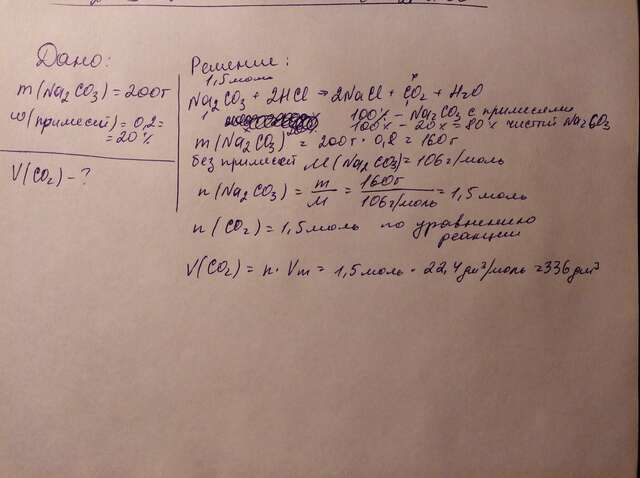 Дано:
m(Na2CO3) = 200г
w(примесей) = 0,2 =
= 20%
V(CO2) - ?
Решение:
1,5моль x
Na2CO3 + 2HCl → 2NaCl + CO2 + H2O
1 1
100% - Na2CO3 с примесями
100% - 20% = 80% чистый Na2CO3
m(Na2CO3) = 200г · 0,8 = 160г
без примесей M(Na2CO3) = 106г/моль
n(Na2CO3) = m/M = 160г/106г/моль = 1,5моль
n(CO2) = 1,5моль по уравнению
реакции
V(CO2) = n · Vm = 1,5моль · 22,4дм³/моль = 336дм³